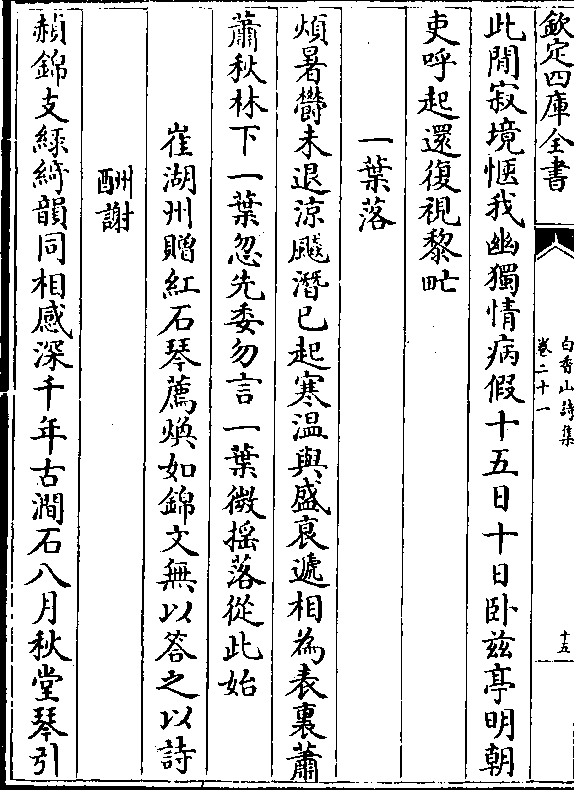 欽定四庫全書
白香山詩集
卷二十一
十五
此閒寂境愜我幽獨情病假十五日十日卧兹亭明朝
吏呼起還復視黎甿
一葉落
煩暑鬱未退涼飈潛已起寒温與盛衰遞相為表裏蕭
蕭秋林下一葉忽先委勿言一葉微揺落從此始
崔湖州贈紅石琴薦煥如錦文無以答之以詩
酬謝
赬錦支緑綺韻同相感深千年古澗石八月秋堂琴引